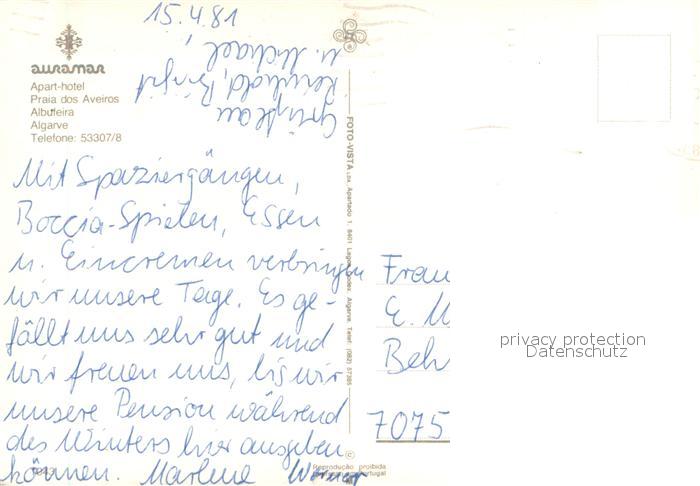 15.4.81
auramar
Apart-hotel
Praia dos Aveiros
Albufeira
Algarve
Telefone: 53307/8
Mit Spaziergängen,
Boccia-Spielen, Essen
u. Eincremen verbringen
wir unsere Tage. Es ge-
fällt uns sehr gut und
wir freuen uns, bis wir
unsere Pension während
des Winters hier ausgeben
können. Marlene Werner
Grüße an
Reinhold, Birgit
u. Michael,
FOTO-VISTA Lda. Apartado 1 8401 Lagoa Codex Algarve Telef. (082)
Frau
E. M
Beh
7075
privacy protection
Datenschutz
©
Reprodução proibida
Portugal